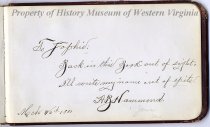 Property of History Museum of Western Virginia
To Sophie.
Back in this Book out of sight,
I'll write my name out of spite.
Hammond